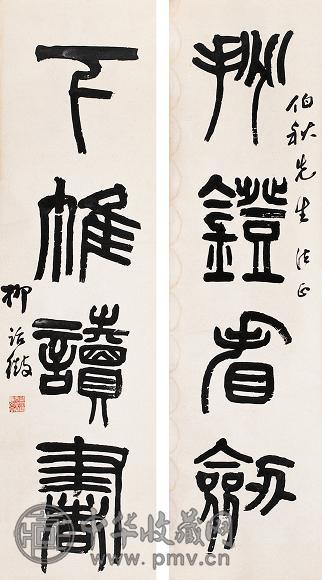 挑鐙看劒
伯秋先生法正
下帷讀書
柳詒徵
中华收藏网
www.pmv.cn